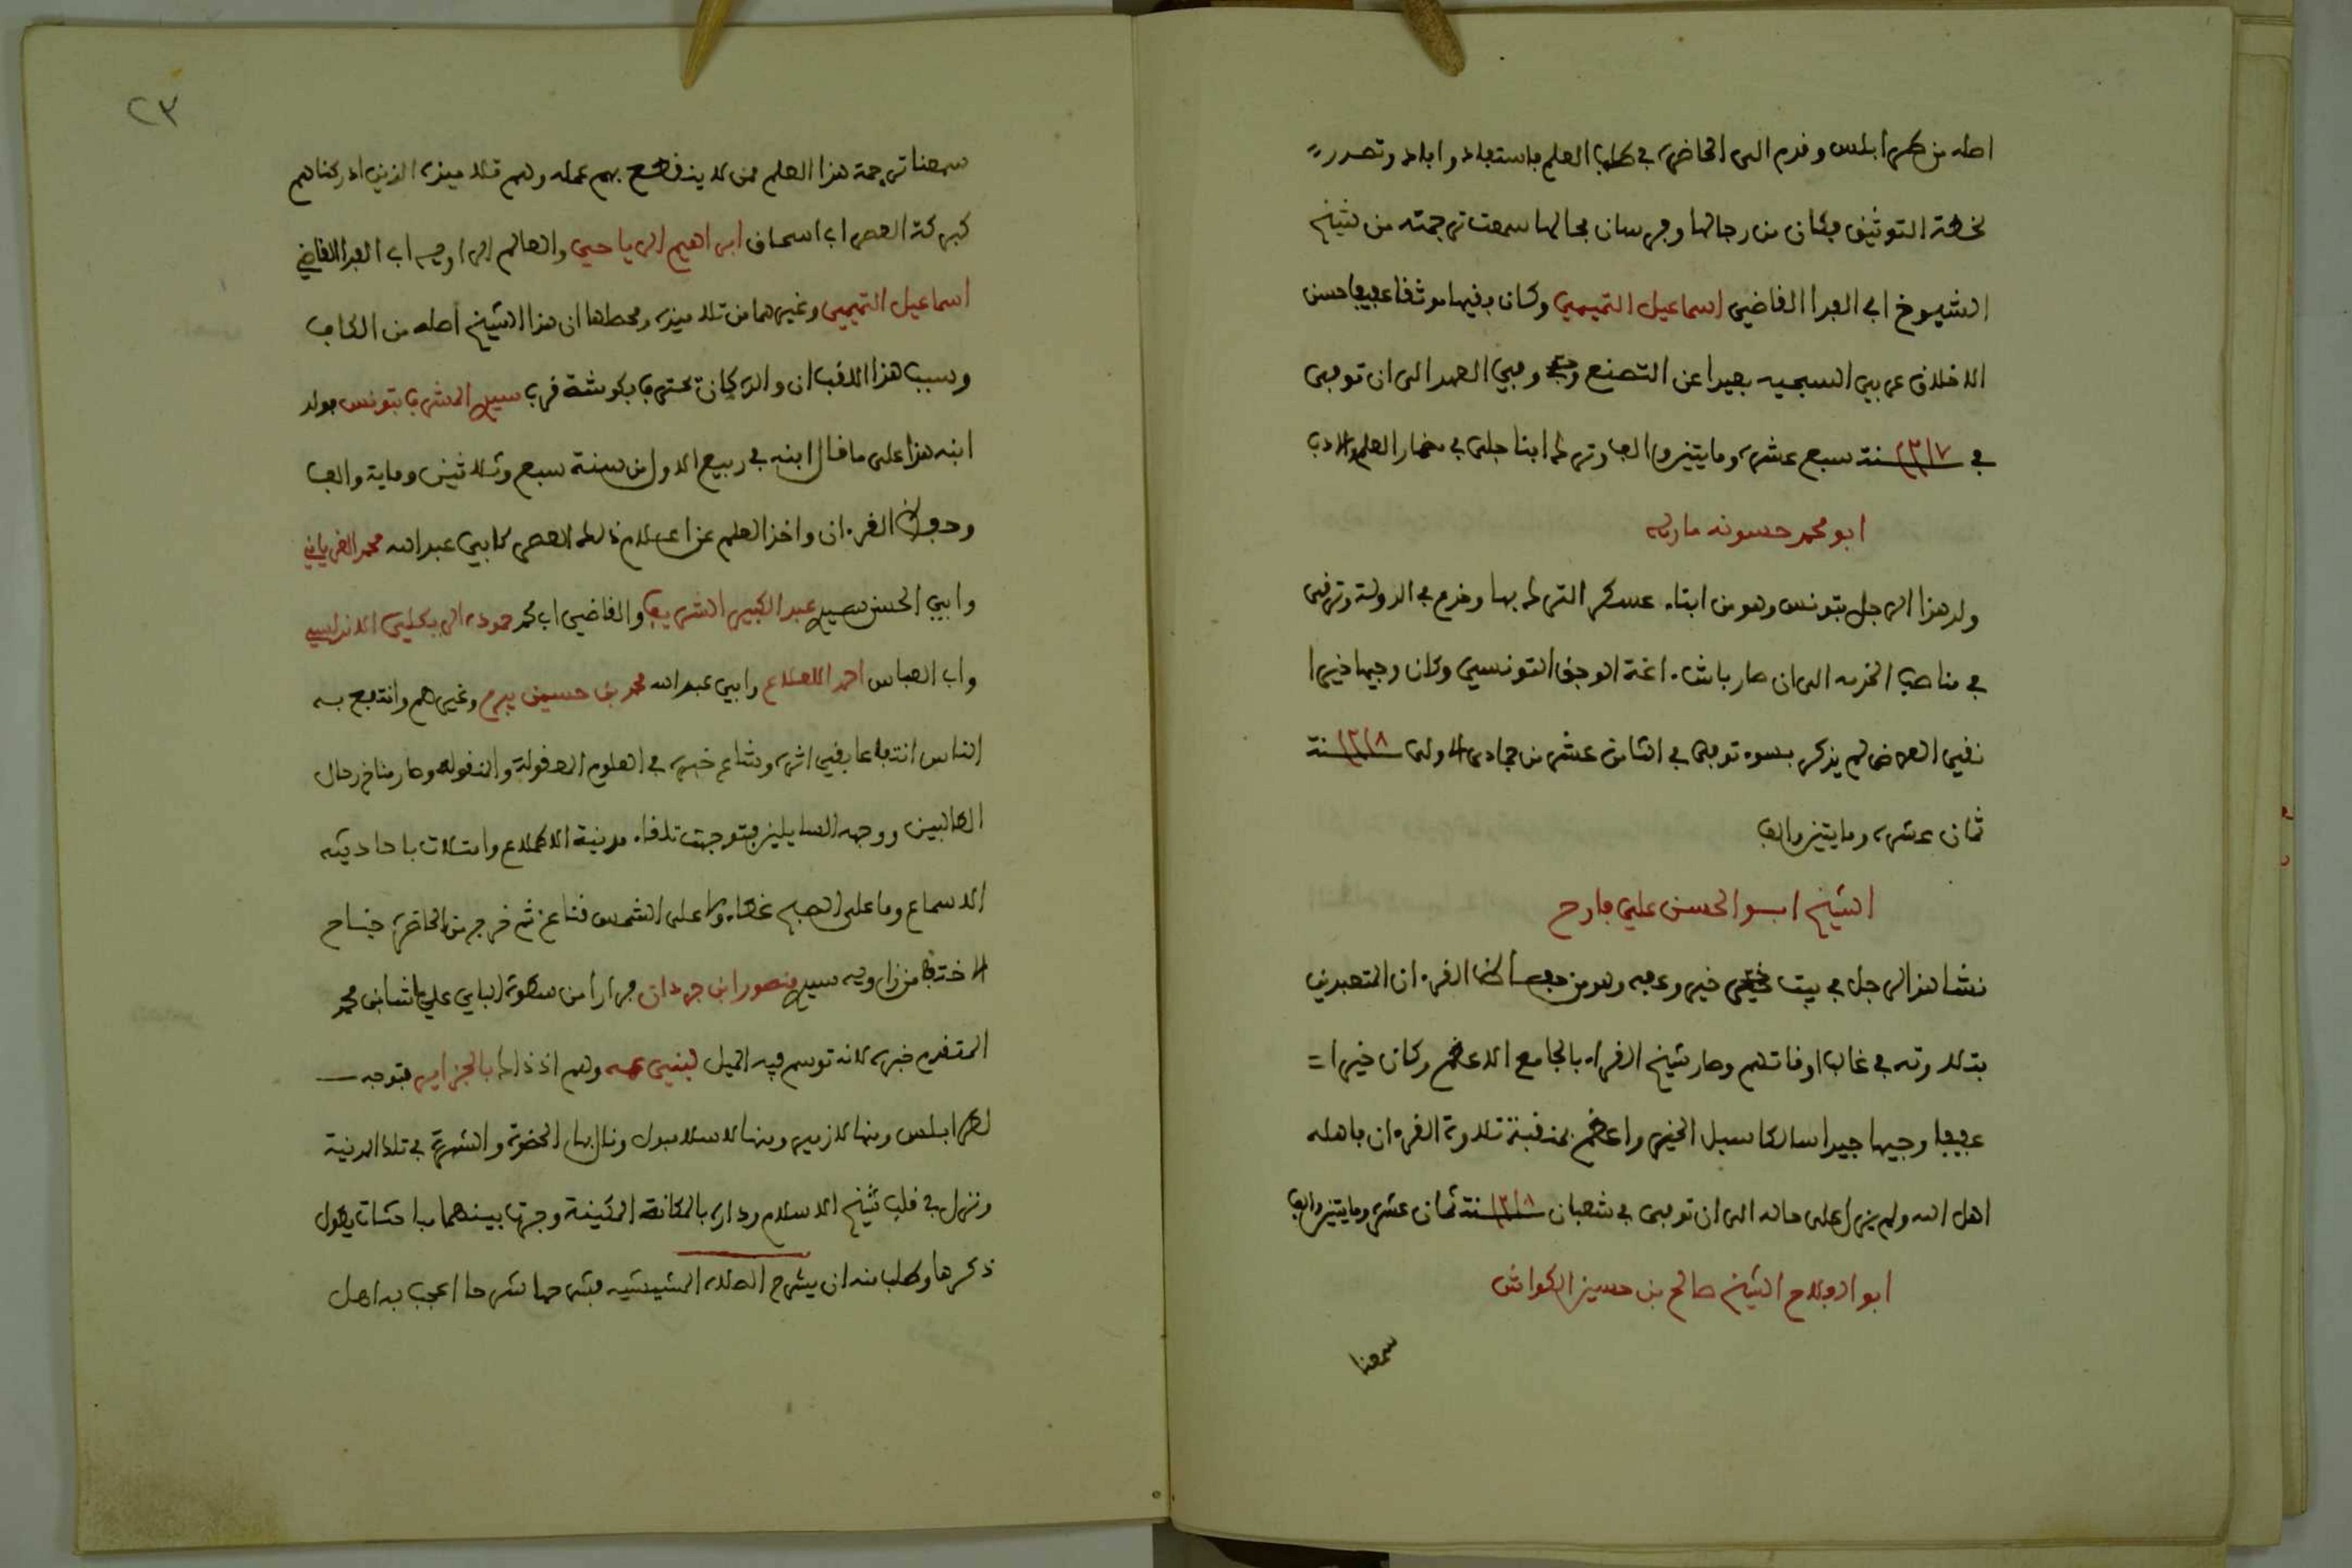 اصله من طرابلس وقدم الى الحاضرة في طلب العلم فاستفاد وافاد وتصدر =
لخطة التوثيق فكان من رجالها وفرسان مجالها سمعت ترجمته من شيخ
الشيوخ ابي الفدا القاضي اسماعيل التميمي وكان فقيها موثقا عفيفا حسن
الاخلاق عربي السجيه بعيدا عن التصنع وفي العهد الى ان توفى
في ١٢١٧ سنة سبع عشرة ومايتين والف وترك ابنا جلى في مضمار العلم والادب
ابو محمد حسونه مارية
ولد هذا الرجل بتونس وهو من ابناء عسكر الترك بها وخدم في الدولة وترقى
في مناصب الخدمه الى ان صار باش اغة الوجق التونسي وكان وجيها خيرا
نقي العرض لم يذكر بسوء توفى في الثامن عشر من جمادى الاولى ١٢١٨ سنة
ثمان عشرة ومايتين والف
الشيخ ابو الحسن علي فارح
نشا هذا الرجل في بيت خير وعفه وهو من حفاظ القرءان المتعبدين
بتلاوته في غالب اوقاتهم وصار شيخ القراء بالجامع الاعظم وكان خيرا =
عفيفا وجيها جيدا سالكا سبل الخير واعظم بمنقبة تلاوة القرءان فاهله
اهل الله ولم يزل على حاله الى ان توفى في شعبان ١٢١٨ سنة ثمان عشرة ومايتين والف
ابو الفلاح الشيخ صالح بن حسين الكواش
سمعنا
٢٣
سمعنا ترجمة هذا العلم ممن لا ينقطع بهم عمله وهم تلاميذه الذين ادركناهم
كبركة العصر اب اسحاق ابراهيم الرياحي والعالم الراويه اب الفدا القاضي
اسماعيل التميمي وغيرهما من تلاميذه ومحطها ان هذا الشيخ أصله من الكاف
وسبب هذا اللقب ان والده كان يحترف بكوشة قرب سيدي المشرف بتونس فولد
ابنه هذا على ما قال ابنه في ربيع الاول من سنة سبع وثلاثين وماية والف
وحفظ القرءان واخذ العلم عن اعلام ذلك العصر كابي عبد الله محمد الغرياني
وابي الحسن سيدي عبد الكبير الشريف والقاضي اب محمد حموده الريكلي الاندلسي
واب العباس احمد اللطاع وابي عبد الله محمد بن حسين بيرم وغيرهم وانتفع به
الناس انتفاعا بقي اثره وشاع خبره في العلوم المعقولة والمنقوله وصار مناخ رحال
الطالبين ووجهه السايلين فتوجهت تلقاء مدينة الاطلاع وامتلات باحاديثه
الاسماع وما على الصبح غطاء ولا على الشمس قناع ثم خرج من الحاضرة خساح
الاختفا من زاويه سيدي منصور ابن جردان فرارا من سطوة الباي علي باشا بن محمد
المتقدم خبره لانه توسم فيه الميل لبني عمه وهم اذ ذاك بالجزاير فتوجه
لطرابلس ومنها لازمير ومنها لاسلامبول ونال بها الحظوة والشهرة في تلك المدينة
ونزل في قلب شيخ الاسلام وداره بالمكانة المكينة وجرت بينهما مباحثات يطول
ذكرها وطلب منه ان يشرح الصلاة المشيشيه فشرحها شرحا اعجب به اهل